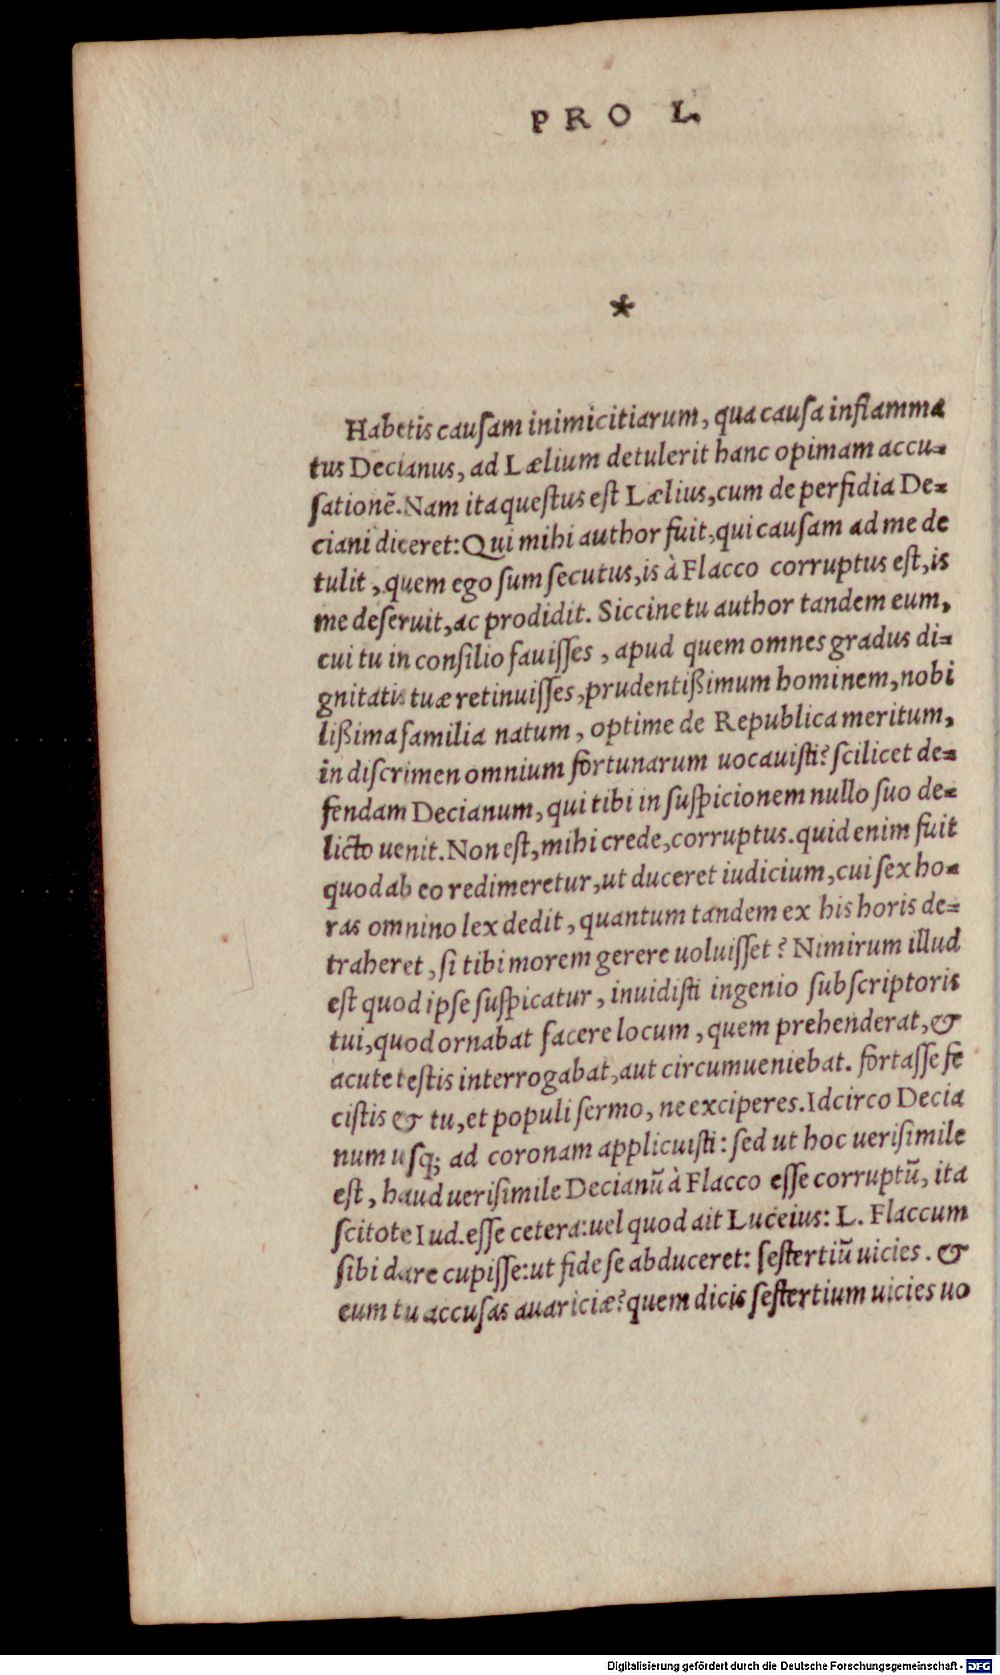 PRO L.
*
Habetis cauſam inimicitiarum, qua cauſa inflamma
tus Decianus, ad Lælium detulerit hanc opimam accu=
ſationẽ. Nam ita queſtus eſt Lælius, cum de perfidia De=
ciani diceret: Qui mihi author fuit, qui cauſam ad me de
tulit, quem ego ſum ſecutus, is à Flacco corruptus eſt, is
me deſeruit, ac prodidit. Siccine tu author tandem eum,
cui tu in conſilio fauiſſes, apud quem omnes gradus di=
gnitatis tuæ retinuiſſes, prudentißimum hominem, nobi
lißima familia natum, optime de Republica meritum,
in diſcrimen omnium fortunarum uocauiſti? ſcilicet de=
fendam Decianum, qui tibi in ſuſpicionem nullo ſuo de=
licto uenit. Non eſt, mihi crede, corruptus. quid enim fuit
quod ab eo redimeretur, ut duceret iudicium, cui ſex ho=
ras omnino lex dedit, quantum tandem ex his horis de=
traheret, ſi tibi morem gerere uoluiſſet? Nimirum illud
eſt quod ipſe ſuſpicatur, inuidiſti ingenio ſubſcriptoris
tui, quod ornabat facere locum, quem prehenderat, &
acute teſtis interrogabat, aut circumueniebat. fortaſſe fe
ciſtis & tu, et populi ſermo, ne exciperes. Idcirco Decia
num uſq; ad coronam applicuiſti: ſed ut hoc ueriſimile
eſt, haud ueriſimile Decianũ à Flacco eſſe corruptũ, ita
ſcitote Iud. eſſe cetera: uel quod ait Luceius: L. Flaccum
ſibi dare cupiſſe: ut fide ſe abduceret: ſeſtertiũ uicies. &
eum tu accuſas auariciæ? quem dicis ſeſtertium uicies uo
Digitalisierung gefördert durch die Deutsche Forschungsgemeinschaft - DFG